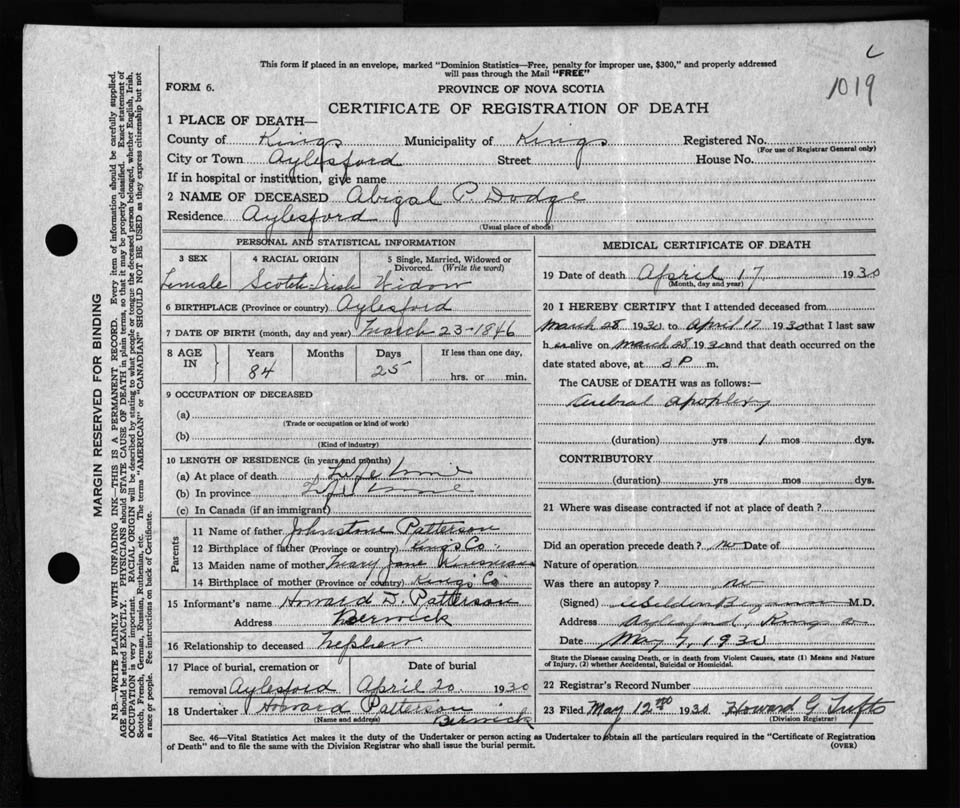 C
1019
This form if placed in an envelope, marked "Dominion Statistics—Free, penalty for improper use, $300," and properly addressed
will pass through the Mail "FREE"
FORM 6.
PROVINCE OF NOVA SCOTIA
CERTIFICATE OF REGISTRATION OF DEATH
1 PLACE OF DEATH—
County of Kings Municipality of Kings Registered No.
(For use of Registrar General only)
City or Town Aylesford Street House No.
If in hospital or institution, give name
2 NAME OF DECEASED Abigal P. Dodge
Residence Aylesford
(Usual place of abode)
PERSONAL AND STATISTICAL INFORMATION
3 SEX 4 RACIAL ORIGIN 5 Single, Married, Widowed or
Divorced. (Write the word)
Female Scotch-Irish Widow
6 BIRTHPLACE (Province or country) Aylesford
7 DATE OF BIRTH (month, day and year) March 23-1846
8 AGE IN Years Months Days If less than one day,
84 25 hrs. or min.
9 OCCUPATION OF DECEASED
(a)
(Trade or occupation or kind of work)
(b)
(Kind of industry)
10 LENGTH OF RESIDENCE (in years and months)
(a) At place of death Life time
(b) In province Life time
(c) In Canada (if an immigrant)
Parents
11 Name of father Johnstone Patterson
12 Birthplace of father (Province or country) Kings Co.
13 Maiden name of mother Mary Jane Kinsman
14 Birthplace of mother (Province or country) Kings Co
15 Informant's name Howard D. Patterson
Address Berwick
16 Relationship to deceased Nephew
17 Place of burial, cremation or Date of burial
removal Aylesford April 20 1930
18 Undertaker Howard Patterson
(Name and address) Berwick
MEDICAL CERTIFICATE OF DEATH
19 Date of death April 17 1930
(Month, day and year)
20 I HEREBY CERTIFY that I attended deceased from
March 28 1930 to April 17 1930 that I last saw
her alive on March 28 1930 and that death occurred on
date stated above, at 3 P m.
The CAUSE of DEATH was as follows:—
Cerebral apoplexy
(duration) yrs 1 mos dys.
CONTRIBUTORY
(duration) yrs mos dys.
21 Where was disease contracted if not at place of death?
Did an operation precede death? no Date of
Nature of operation
Was there an autopsy? no
(Signed) M.D.
Address Aylesford, Kings Co
Date May 7, 1930
State the Disease causing Death, or in death from Violent Causes, state (1) Means and Nature
of Injury, (2) whether Accidental, Suicidal or Homicidal.
22 Registrar's Record Number
23 Filed May 12th 1930 Howard G Tufts
(Division Registrar)
Sec. 46—Vital Statistics Act makes it the duty of the Undertaker or person acting as Undertaker to obtain all the particulars required in the "Certificate of Registration
of Death" and to file the same with the Division Registrar who shall issue the burial permit. (OVER)
MARGIN RESERVED FOR BINDING
N.B.—WRITE PLAINLY WITH UNFADING INK—THIS IS A PERMANENT RECORD. Every item of information should be carefully supplied.
AGE should be stated EXACTLY. PHYSICIANS should STATE CAUSE OF DEATH in plain terms, so that it may be properly classified. Exact statement of
OCCUPATION is very important. RACIAL ORIGIN will be described by stating to what people or tongue the deceased person belonged, whether English, Irish,
Scotch, French, German, Russian, Ruthenian, etc. The terms "AMERICAN" or "CANADIAN" SHOULD NOT BE USED as they express citizenship but not
a race or people. See instructions on back of Certificate.